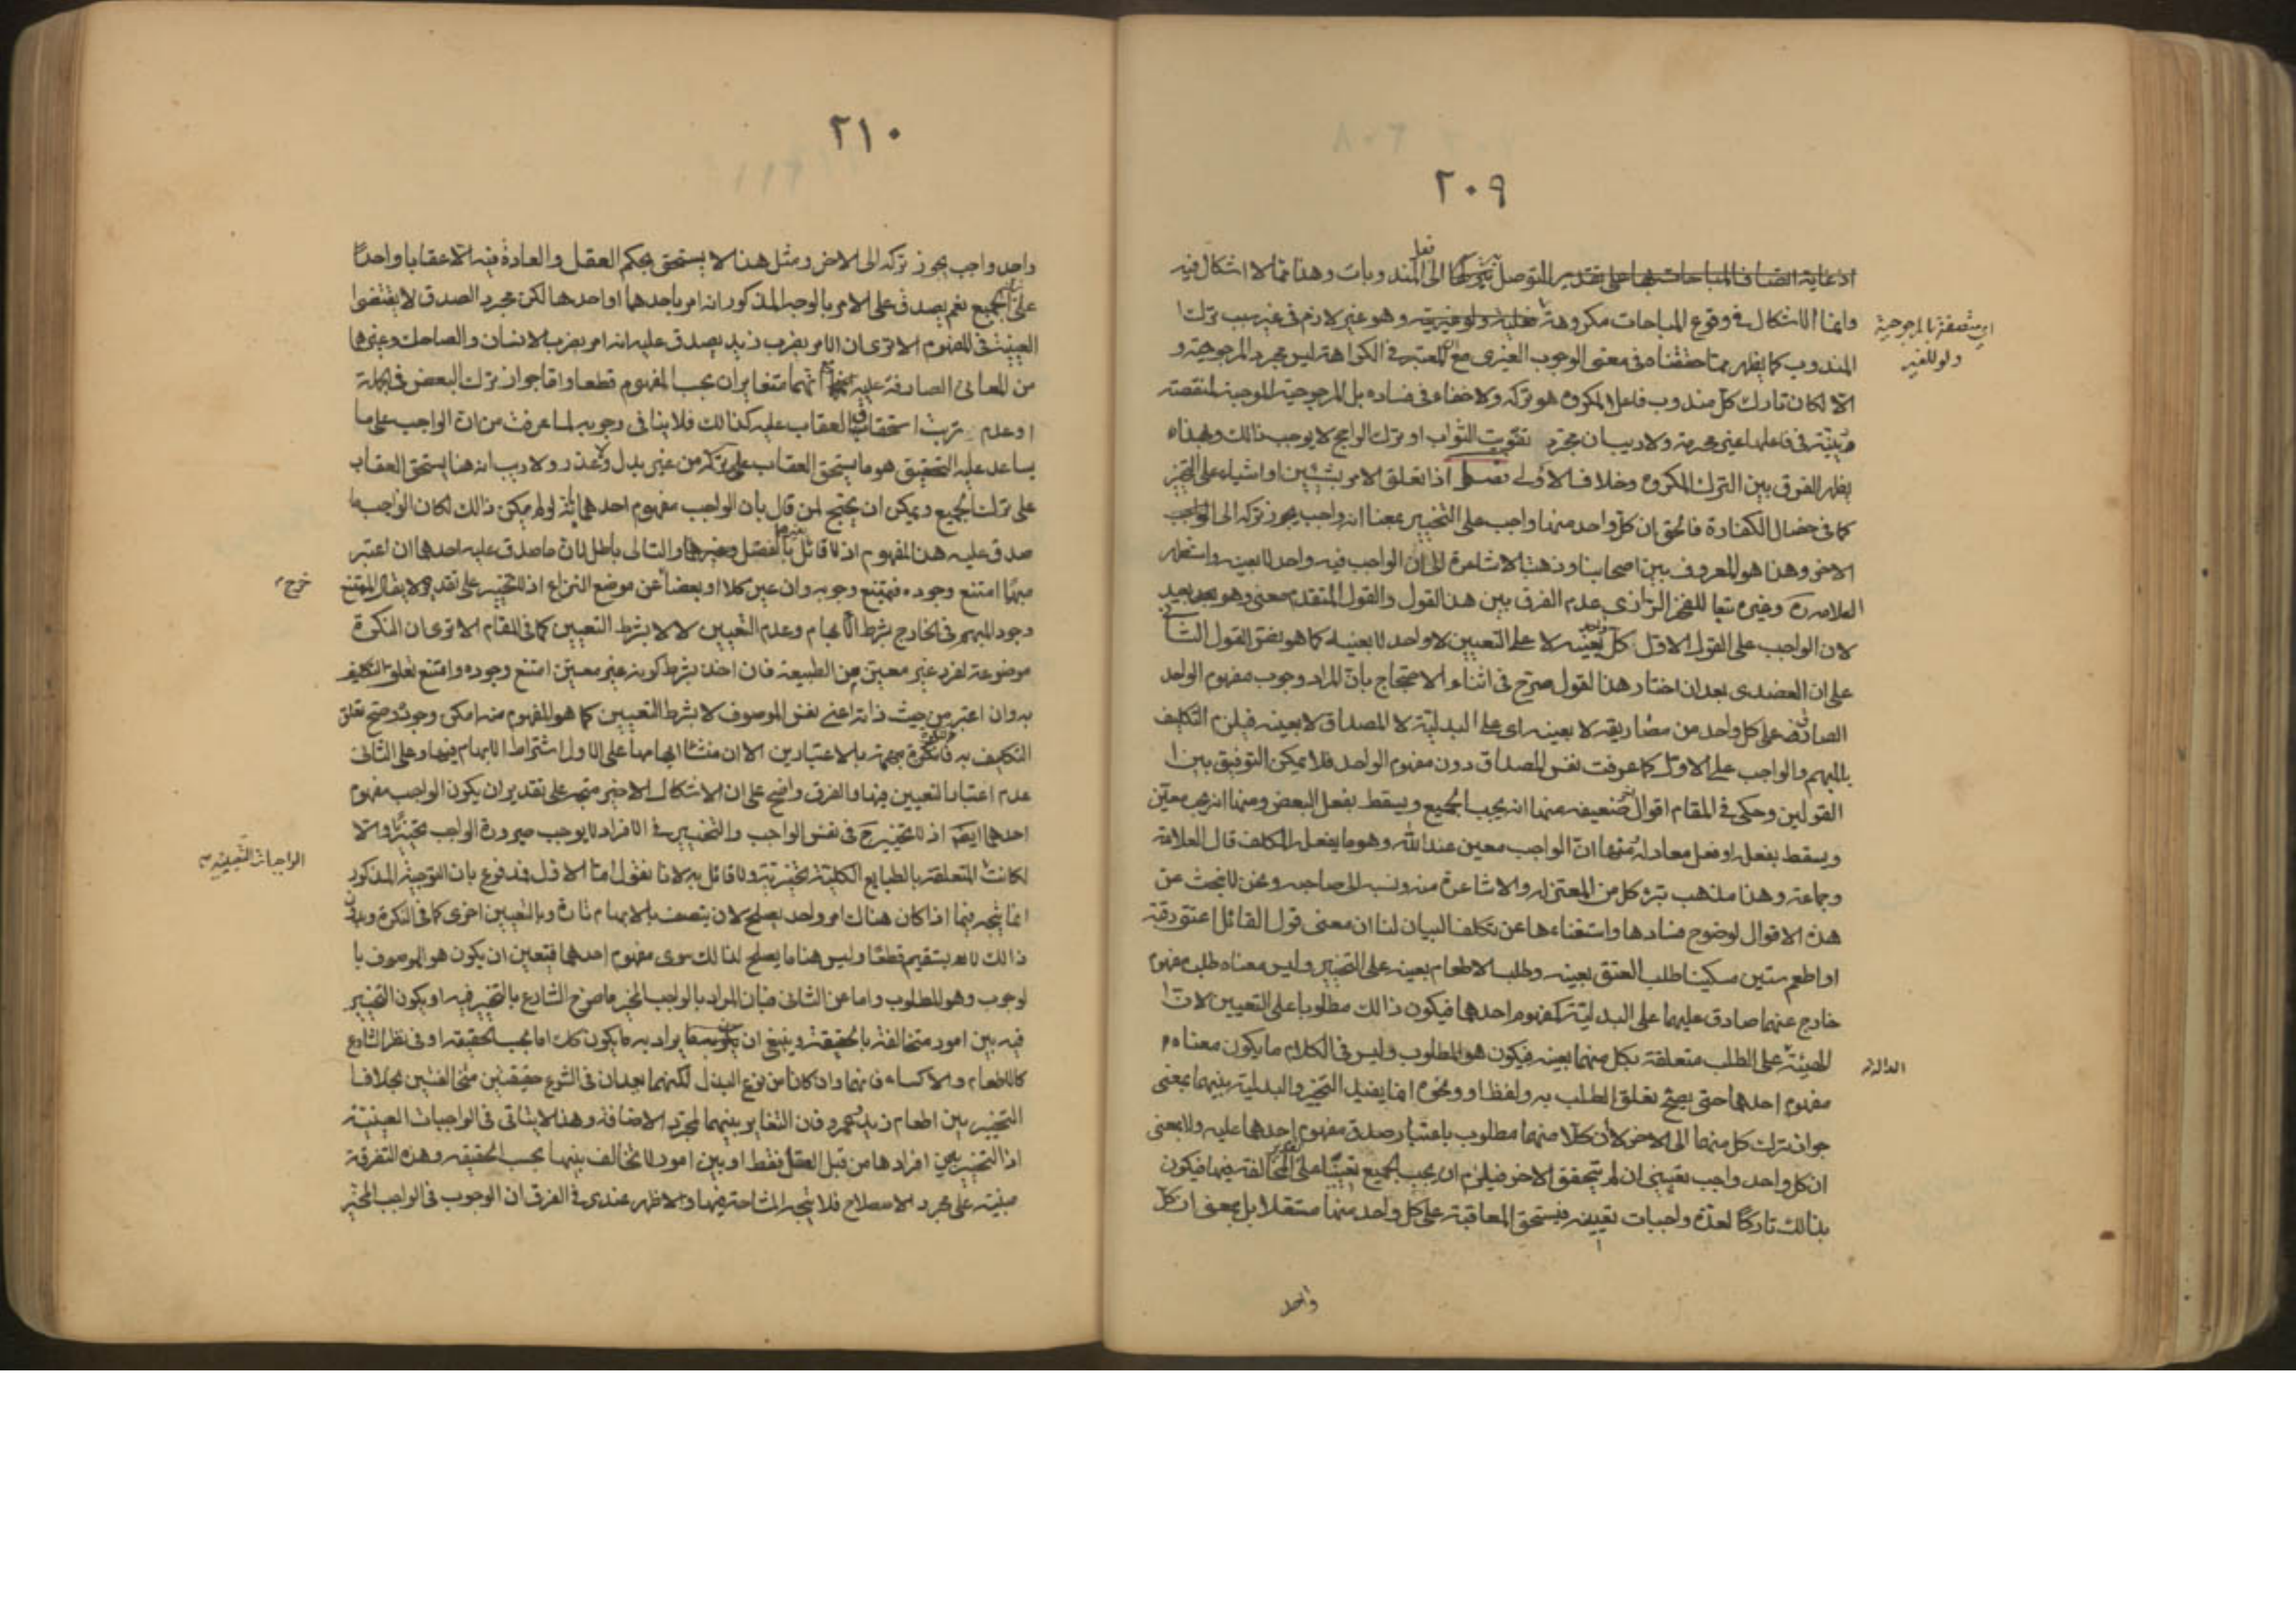 ٢٠٩
ادعاية اتصاف المباحات بها على تقدير التوصل بتركها الى فعل المندوبات وهذا مما لا اشكال فيه
وانما الاشكال في وقوع المباحات مكروهة وهو غير لازم في غير سبب ترك ا
اي متصفة بالمرجوحية
ولو للغير
المندوب كما يظهر مما حققناه في معنى الوجوب الغيرى مع ان المعتبر في الكراهة ليس مجرد المرجوحية و
الا لكان تارك كل مندوب فاعلا لمكروه هو تركه ولا خفاء في فساده بل المرجوحية الموجبة لمنقصة
دينية في فاعلها غير محرمة ولا ريب ان مجرد تفويت الثواب او ترك الراجح لا يوجب ذالك وهذا ه
يظهر الفرق بين الترك المكروه وخلاف الاولى فصل اذا تعلق الامر بشيئين او اشياء على التخيير
كما في خصال الكفارة فالحق ان كل واحد منها واجب على التخيير بمعنا انه واجب يجوز تركه الى الواجب
الاخر وهذا هو المعروف بين اصحابنا وذهبت الاشاعرة الى ان الواجب فيه واحد لا بعينه واستظهر
العلامة ره وغيره تبعا للفخر الرازى عدم الفرق بين هذا القول والقول المتقدم معنى وهو بعيد
لان الواجب على القول الاول كل واحد بعينه لا على التعيين لا واحد لا بعينه كما هو نص القول الثانى
على ان العضدى بعد ان اختار هذا القول صرح في اثناء الاحتجاج بان المراد وجوب مفهوم الواحد
الصادق على كل واحد من مصاديقه لا بعينه اى على البدلية لا المصداق لا بعينه فيلزم التكليف
بالمبهم والواجب على الاول كما عرفت نفس المصداق دون مفهوم الواحد فلا يمكن التوفيق بين ا
القولين وحكى في المقام اقوال اخر ضعيفه منها انه يجب الجميع ويسقط بفعل البعض ومنها انه يجب معين
ويسقط بفعله او فعل معادله ومنها ان الواجب معين عند الله وهو ما يفعله المكلف قال العلامة
وجماعة وهذا مذهب تبرء كل من المعتزله والاشاعرة منه ونسبه الى صاحبه ونحن لا نبحث عن
هذه الاقوال لوضوح فسادها واستغناءها عن تكلف البيان لنا ان معنى قول القائل اعتق رقبة
او اطعم ستين مسكينا طلب العتق بعينه وطلب الاطعام بعينه على التخيير وليس معناه طلب مفهوم
خارج عنهما صادق عليهما على البدلية كمفهوم احدهما فيكون ذالك مطلوبا على التعيين لان ا
الهيئة الدالة على الطلب متعلقة بكل منهما بعينه فيكون هو المطلوب وليس في الكلام ما يكون معناه
مفهوم احدهما حتى يصح تعلق الطلب به ولفظ او ونحوه انما يفيد التخيير والبدلية بينهما بمعنى
جواز ترك كل منهما الى الاخر لا ان كلا منهما مطلوب باعتبار صدق مفهوم احدهما عليه ولا بمعنى
ان كل واحد واجب تعيينى ان لم يتحقق الاخر فيلزم ان يجب الجميع تعيينا على تقدير المخالفة فيهما فيكون
بذالك تاركا لعدة واجبات تعيينه فيستحق المعاقبة على كل واحد منهما مستقلا بل بمعنى ان كل
واحد
٢١٠
واحد واجب يجوز تركه الى الاخر ومثل هذا لا يستحق بحكم العقل والعادة فيه الا عقابا واحدا
على ترك الجميع نعم يصدق على الامر بالوجه المذكور انه امر باحدهما او احدها لكن مجرد الصدق لا يقتضى ا
العينية في المفهوم الا ترى ان الامر بضرب زيد يصدق عليه انه امر بضرب الانسان والضاحك وغيرها
من المعانى الصادقة عليه مع انهما متغايران بحسب المفهوم قطعا واما جواز ترك البعض في الجملة
او عدم ترتب استحقاق العقاب عليه كذالك فلا ينافى وجوبه لما عرفت من ان الواجب على ما
يساعد عليه التحقيق هو ما يستحق العقاب على تركه من غير بدل ولا عذر ولا ريب انه هنا يستحق العقاب
على ترك الجميع ويمكن ان يحتج لمن قال بان الواجب مفهوم احدهما بانه لو لم يكن ذالك لكان الواجب ما
صدق عليه هذا المفهوم اذ لا قائل بالفصل والتالى باطل لان ما صدق عليه احدها ان اعتبر
مبهما امتنع وجوده فيمتنع وجوبه وان عين كلا او بعضا خرج عن موضع النزاع اذ لا تخيير على تقديره لا يقال الممتنع
وجود المبهم في الخارج بشرط الابهام وعدم التعيين لا لا بشرط التعيين كما في المقام الا ترى ان النكرة
موضوعة لفرد غير معين من الطبيعة فان اخذ بشرط كونه غير معين امتنع وجوده وامتنع تعلق التكليف
به وان اعتبر من حيث ذاته اعنى نفس الموصوف لا بشرط التعيين كما هو المفهوم منه امكن وجوده وصح تعلق
التكليف به فالنكرة مبهمة بالاعتبارين الا ان منشا ابهامها على الاول اشتراط الابهام فيها وعلى الثانى
عدم اعتبار التعيين فيها والفرق واضح على ان الاشكال الاخير متجه على تقدير ان يكون الواجب مفهوم
احدهما ايضا اذ لا تخيير ح في نفس الواجب والتخيير في الافراد لا يوجب صيرورة الواجب تخييرا والا
لكانت الواجبات التعيينيه المتعلقة بالطبايع الكلية تخييرية ولا قائل به لانا نقول اما الاول فمدفوع بان التوجيه المذكور
انما يتجه فيما اذا كان هناك امر واحد يصلح لان يتصف بالابهام تارة وبالتعيين اخرى كما في النكرة وبدون
ذالك لا يستقيم قطعا وليس هنا ما يصلح لذالك سوى مفهوم احدهما فتعين ان يكون هو الموصوف با
لوجوب وهو المطلوب واما عن الثانى فبان المراد بالواجب المخير ما صرح الشارع بالتخيير فيه او يكون التخيير
فيه بين امور متخالفة بالحقيقة وينبغى ان يراد به ما يكون كك اما بحسب الحقيقة او في نظر الشارع
كالاطعام والاكساء فانهما وان كانا من نوع البذل لكنهما يعدان في الشرع حقيقتين متخالفتين بخلاف ا
التخيير بين اطعام زيد وعمرو فان التغاير بينهما لمجرد الاضافة وهذا لا يتاتى في الواجبات العينية
اذ التخيير بين افرادها من قبل العقل فقط او بين امور لا تخالف بينها بحسب الحقيقه وهذه التفرقة
مبنية على مجرد الاصطلاح فلا يتجه المشاحة فيها والاظهر عندى في الفرق ان الوجوب في الواجب المخير